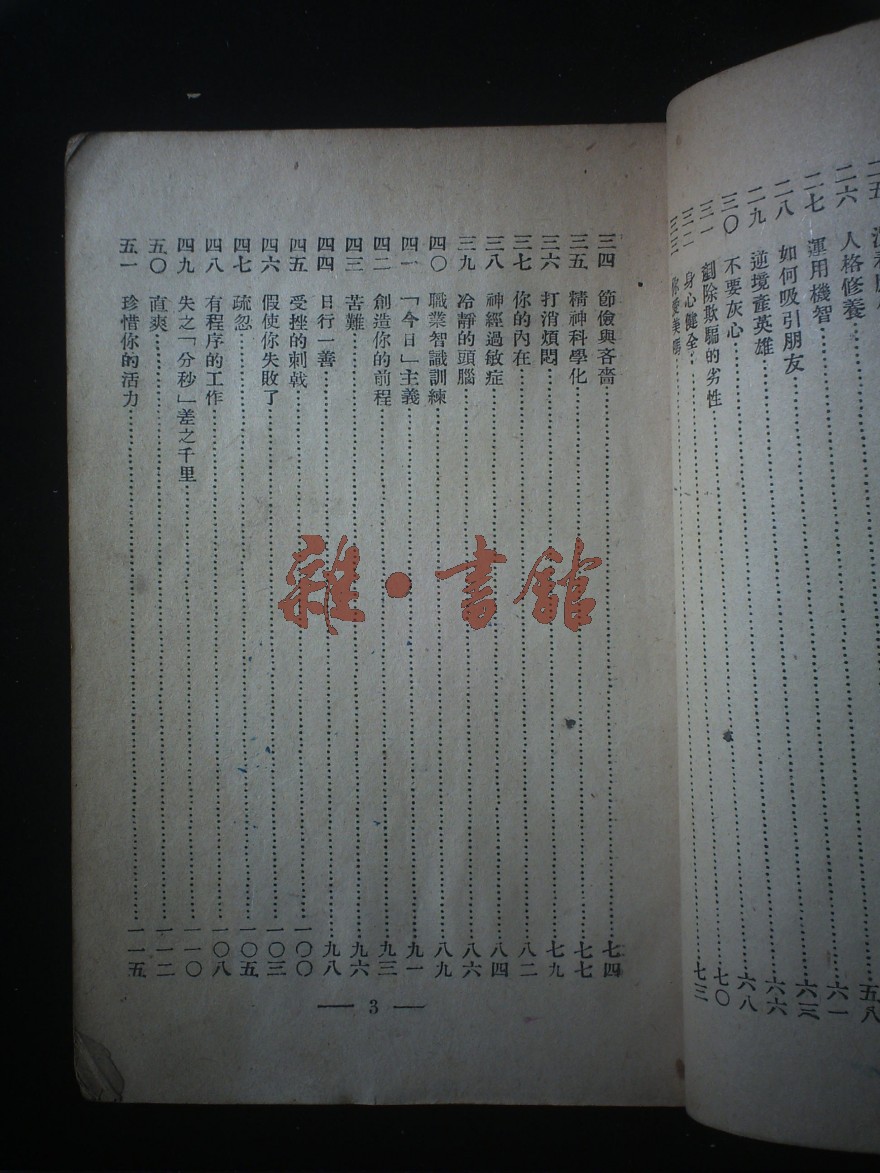 二五
五八
二六 人格修養 六一
二七 運用機智 六三
二八 如何吸引朋友 六六
二九 逆境產英雄 六八
三〇 不要灰心 七〇
三一 剷除欺騙的劣性 七三
三二 身心健全
三三 你愛美嗎
三四 節儉與吝嗇 七四
三五 精神科學化 七七
三六 打消煩悶 七九
三七 你的內在 八二
三八 神經過敏症 八四
三九 冷靜的頭腦 八六
四〇 職業智識訓練 八九
四一 「今日」主義 九一
四二 創造你的前程 九三
四三 苦難 九六
四四 日行一善 九八
四五 受挫的刺戟 一〇〇
四六 假使你失敗了 一〇三
四七 疏忽 一〇五
四八 有程序的工作 一〇八
四九 失之「分秒」差之千里 一一〇
五〇 直爽 一一二
五一 珍惜你的活力 一一五
— 3 —
雜·書館